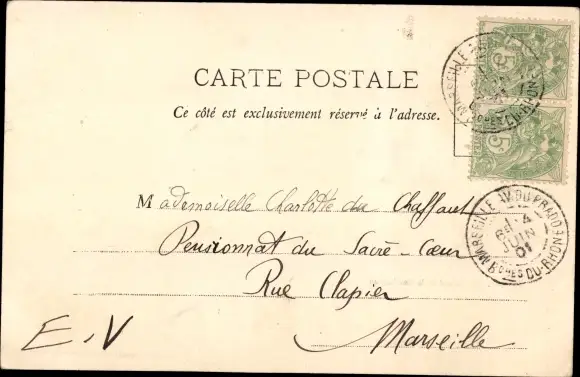 CARTE POSTALE
Ce côté est exclusivement réservé à l'adresse.
5
5
MARSEILLE
BCHES DU-RHONE
Mademoiselle Charlotte du Chaffaut
Pensionnat du Sacré-Cœur
Rue Clapier
Marseille
E.V
MARSEILLE AV. DU PRADO
4
JUIN
01
BCHES DU-RHONE